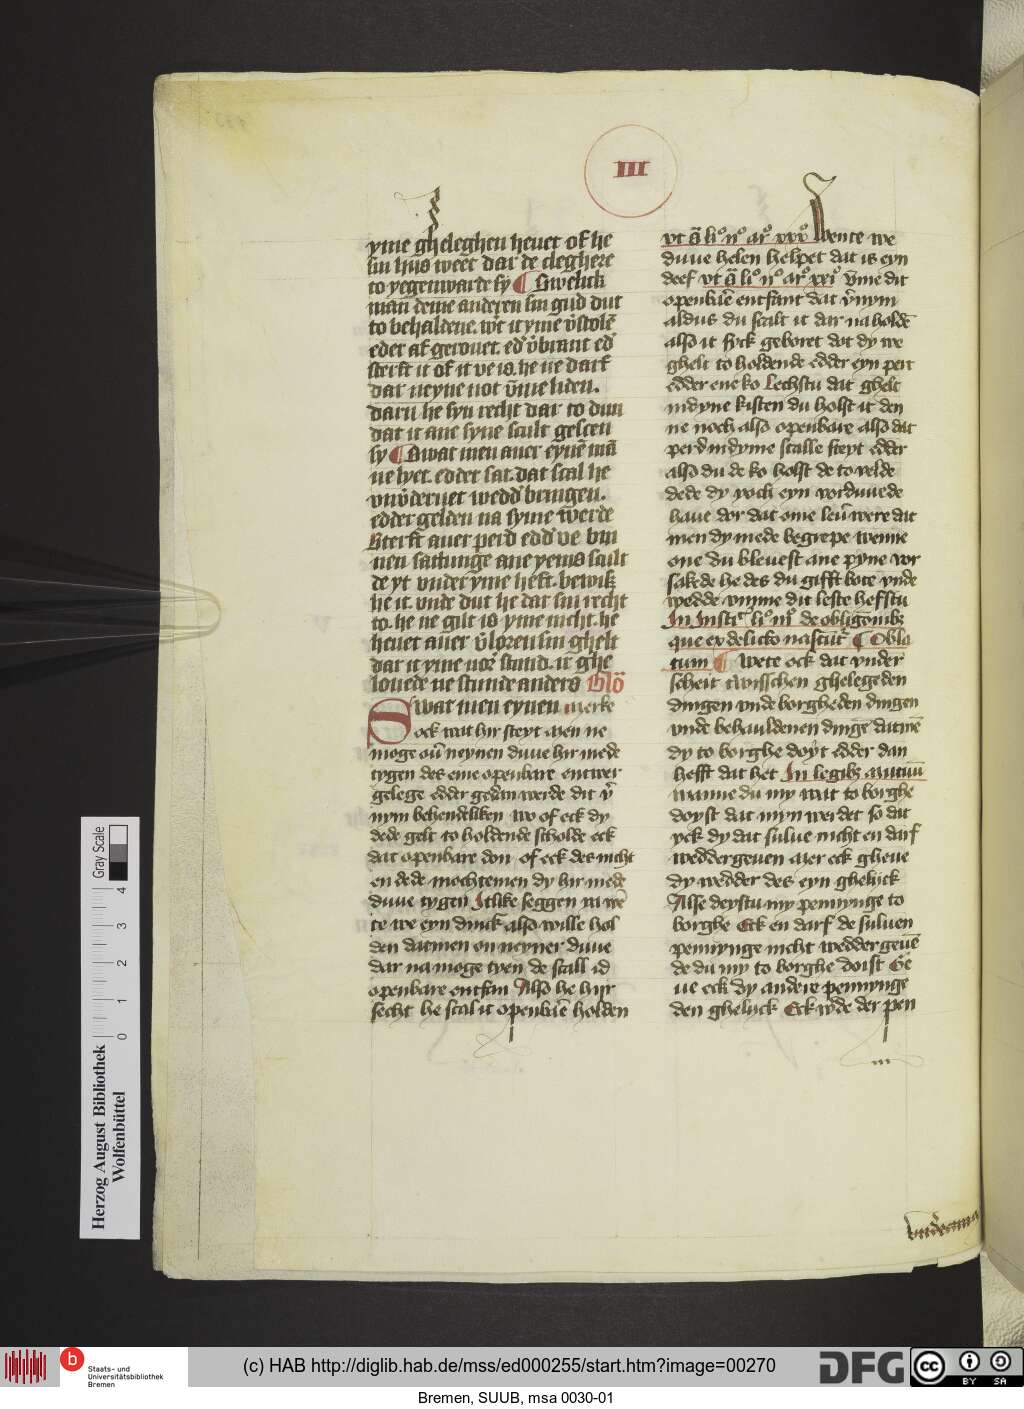 III
yme gheleghen heuet of he
sin hus weet dar de cleghere
to yegenwarde sy ¶ Swelick
man deme anderen sin gud dut
to behaldene. wert it yme v̄stolē
eder af gerouet. ed v̄brant ed
sterft it of it ve is. he ne darf
dar neyne not v̄me liden.
darn he syn recht dar to dun
dat it ane syne scult gescen
sy ¶ Swat men auer eynē mā
ne lyet. edder sat. dat scal he
vnv̄deruet wedd bringen.
edder gelden na syme werde
Sterft auer perd edd ve bin
nen sattunge ane yenis scult
de yt vnder yme heft. bewisz
he it. vnde dut he dar sin recht
to. he ne gilt is yme nicht. he
heuet auer v̄loren sin ghelt
dar it yme vor stund. it ghe
louede ne stunde anders Glo
Swat men eynen merke
ock wat hir steyt wen ne
moge ou neynen duue hir mede
tygen des eme openbare entwer
gelege edder gedan werde dit v̄
nym behendeliken wo of eck dy
dede gelt to holdende scholde eck
dat openbare don of eck des nicht
en dede mochtemen dy hir mede
duue tygen Itlike seggen na wē
te we eyn dinck also wille hol
den datmen on neyner duue
dar na moge tyen de scall id
openbare entfan Also he hyr
secht he scal it openbāe holden
vt ā li° ii° ar° xxx° Wente we
duue helen helpet dat is eyn
deef vt ā li° ii° ar° xxi° v̄me dit
openbāe entfant dat v̄nym
aldus du scalt it dar na holdē
also it syck geboret dat dy we
ghelt to holdende edder eyn pert
edder ene ko Lechstu dat ghelt
in dyne kisten du holst it den
ne noch also openbare also dat
perd in dyme stalle steyt edder
also du de ko holst de to velde
dede dy yoch eyn vorduuede
haue dor dat ome leū were dat
men dy mede begrepe wenne
one du bleuest ane pyne vor
sakede he des du gifft bote vnde
wedde vmme dit leste hefstu
In Inste li° iii° de obligeonibz
que ex delicto nascūt ¶ Obla
tum ¶ Wete ock dat vnder
scheit twisschen ghelegeden
dingen vnde borgheden dingen
vnde behauldenen dinge datmē
dy to borghe doyt edder dan
hefft dat het In legibz mutuū
wanne du my wat to borghe
doyst dat myn werdet so dat
yck dy dat sulue nicht en darf
weddergeuen mer eck gheue
dy wedder des eyn ghelyck
Alse deystu my pennynge to
borghe Eck en darf de suluen
pennynge nicht weddergeuē
de du my to borghe doist Ge
ue eck dy andere pennynge
den ghelyck Eck wde der pen
Herzog August Bibliothek
Wolfenbüttel
0 1 2 3 4
Gray Scale
b
Staats- und
Universitätsbibliothek
Bremen
(c) HAB http://diglib.hab.de/mss/ed000255/start.htm?image=00270
DFG
cc
BY SA
Bremen, SUUB, msa 0030-01